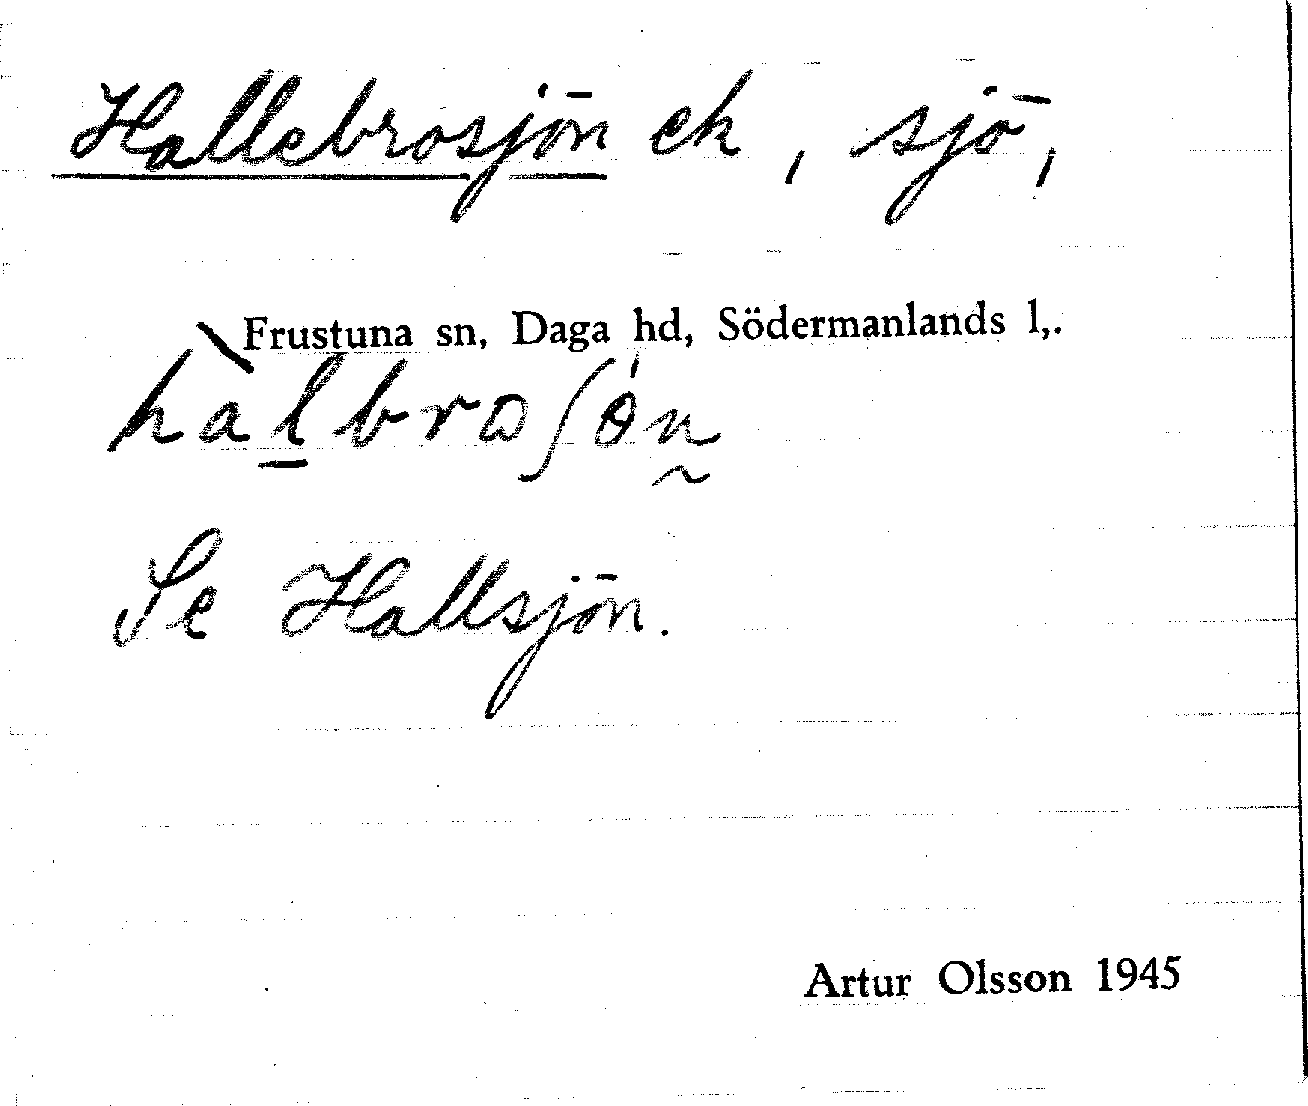 Hallebrosjön ek, sjö,
Frustuna sn, Daga hd, Södermanlands l,.
hàl̲brɷʃɵ́n̰
Se Hallsjön.
Artur Olsson 1945